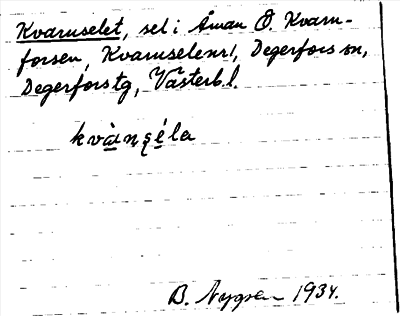 Kvarnselet, sel i Åman Ö. Kvarn-
forsen, Kvarnselenr 1, Degerfors sn,
Degerfors tg, Västerb. l.
kvànṣéla
B. Nygren 1934.